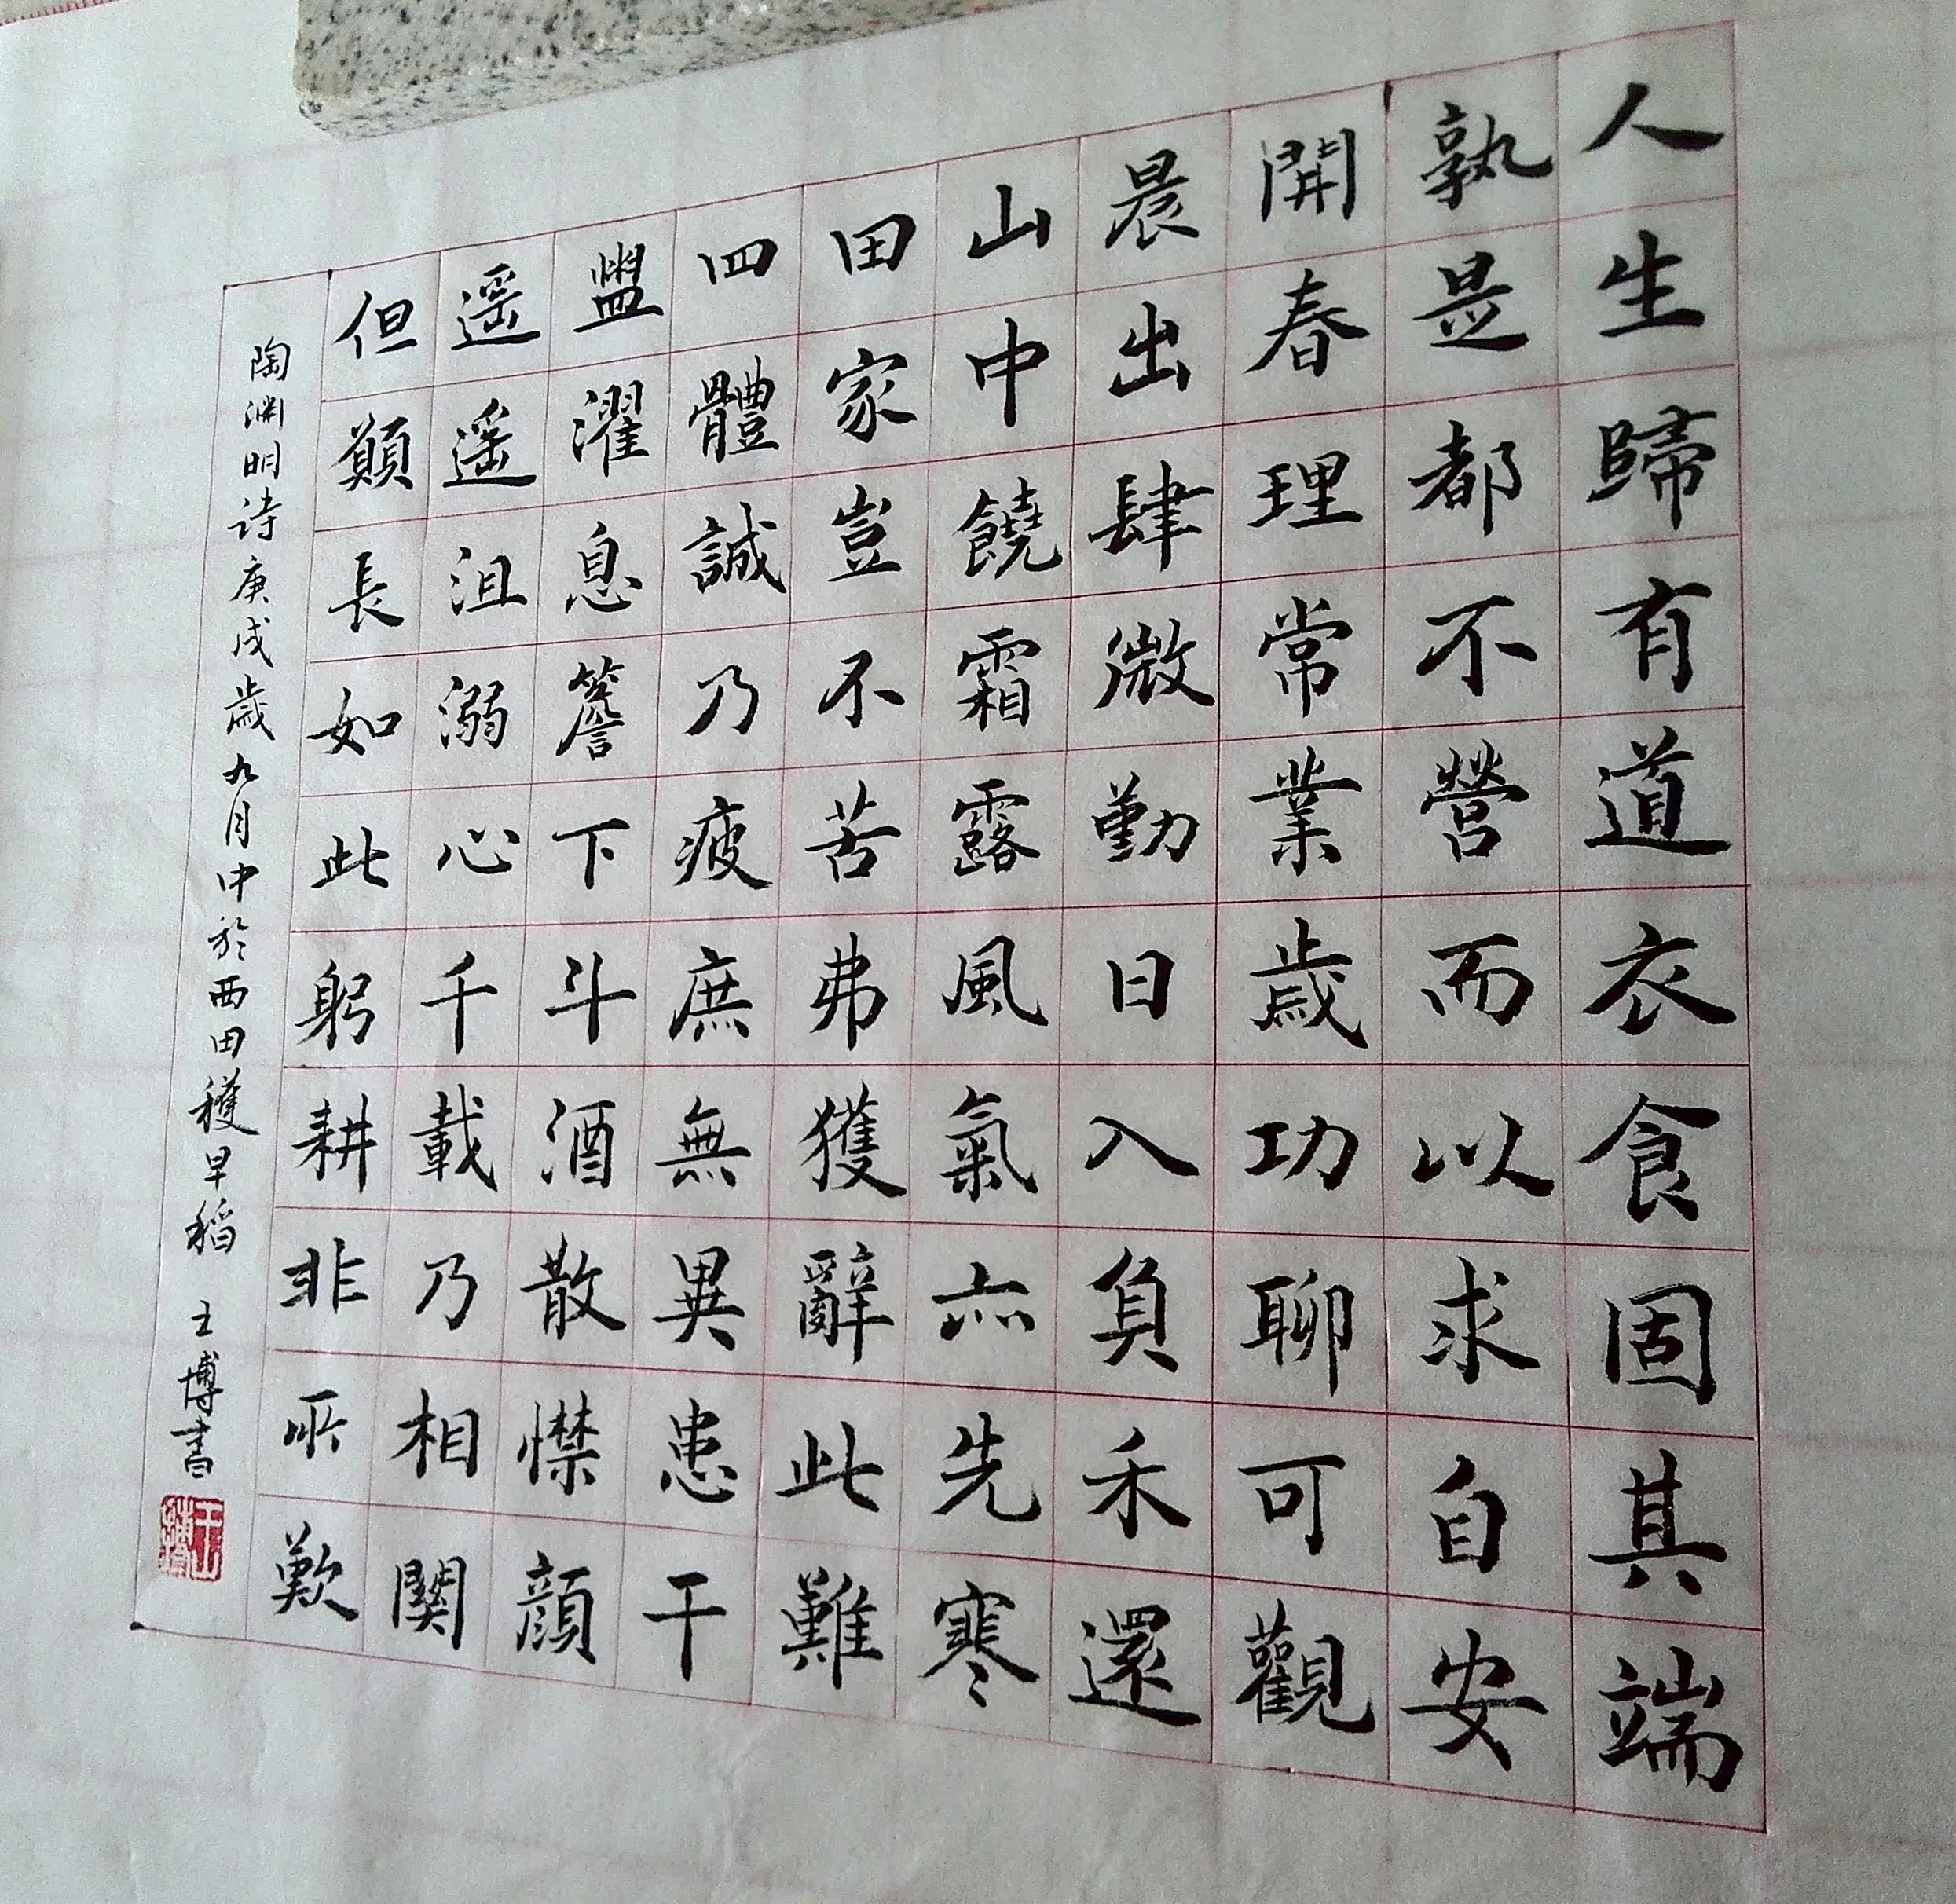 人生歸有道衣食固其端
孰是都不營而以求自安
開春理常業歲功聊可觀
晨出肆微勤日入負禾還
山中饒霜露風氣亦先寒
田家豈不苦弗獲辭此難
四體誠乃疲庶無異患干
盥濯息簷下斗酒散襟顏
遥遥沮溺心千載乃相關
但願長如此躬耕非所歎
陶渊明诗庚戌歲九月中於西田穫早稻 王博書
王博